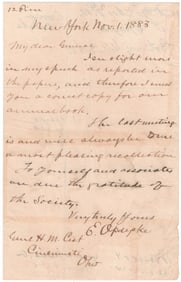 New York Nov. 1. 1883
My dear General
I see slight error
in my speech as reported in
the papers, and therefore I send
you a correct copy for our
annual book.
The last meeting
is and were always be
a most pleasing recollection
To yourself and associates
are due the gratitude of
the Society.
Very truly Yours
Genl H. M. Cist
Cincinnati
Ohio